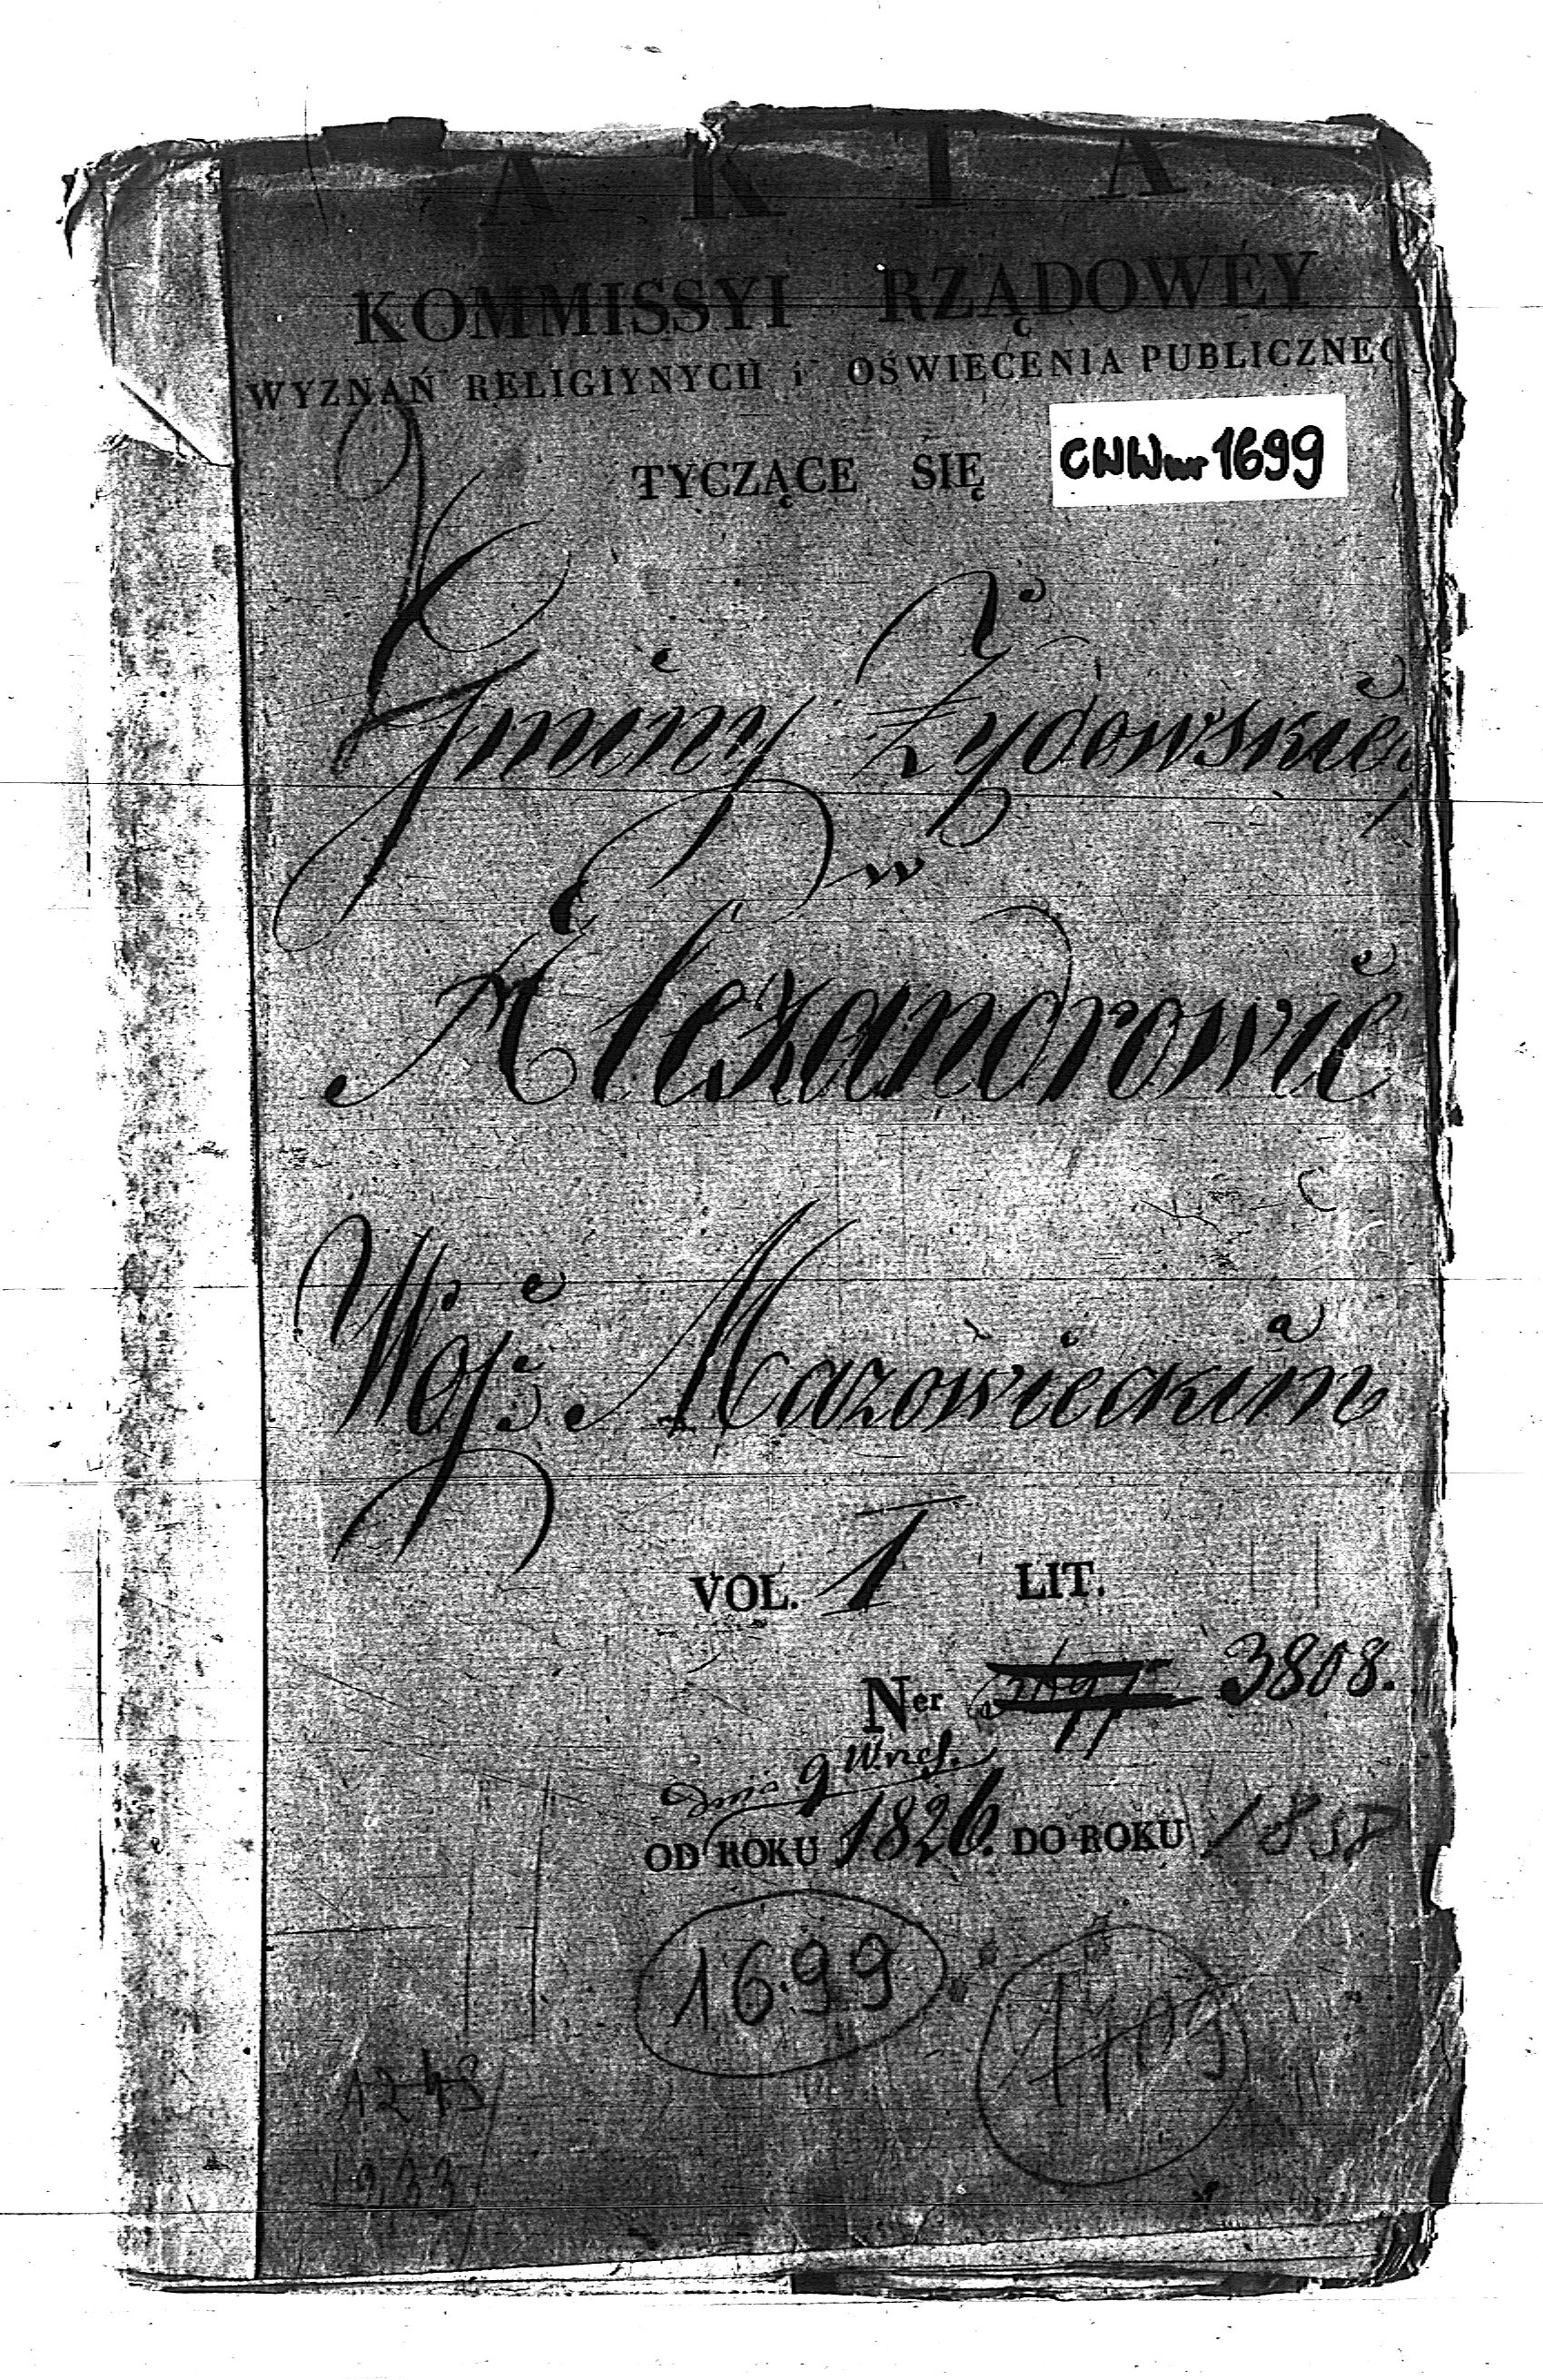 AKTA
KOMMISSYI RZĄDOWÉY
WYZNAŃ RELIGIYNYCH i OŚWIECENIA PUBLICZNEG
TYCZĄCE SIĘ
CWW nr 1699
Gminy Żydowskiej
w
Alexandrowie
Woj: Mazowieckim
VOL. I LIT.
Ner 3808.
dnia 9 Wrzes.
OD ROKU 1826. DO ROKU
1699
1243